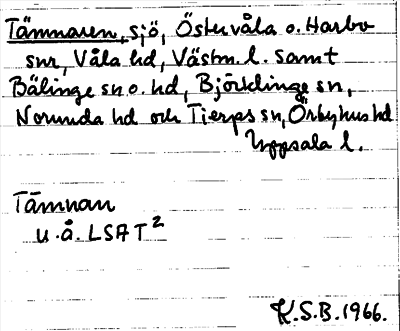 Tämnaren, sjö, Östervåla o. Harbo
snr, Våla hd, Västm. l. samt
Bälinge sn o. hd, Björklinge sn,
Norunda hd och Tierps sn, Örbyhus hd
Uppsala l.
Tämnan
u.å. LSAT²
K.S.B. 1966.